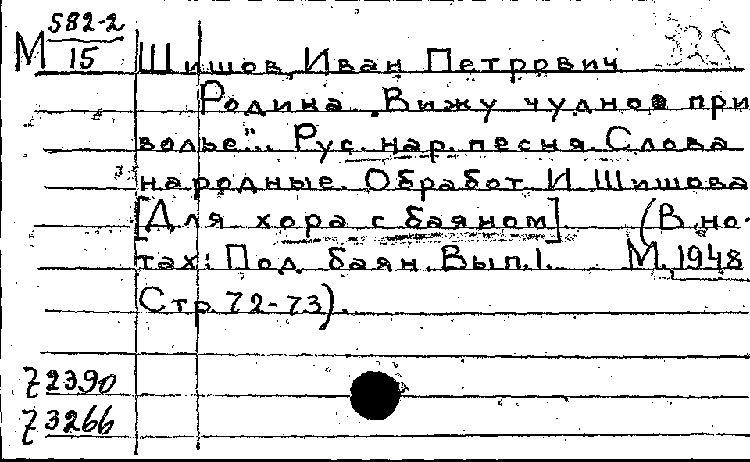 М 582-2
15
Шишов, Иван Петрович
Родина „Вижу чудное при
волье"... Рус. нар. песня. Слова
народные. Обработ. И. Шишова
[Для хора с баяном]. (В но-
тах: Под баян. Вып. 1. М., 1948
Стр. 72-73).
Z 2390
Z 3266